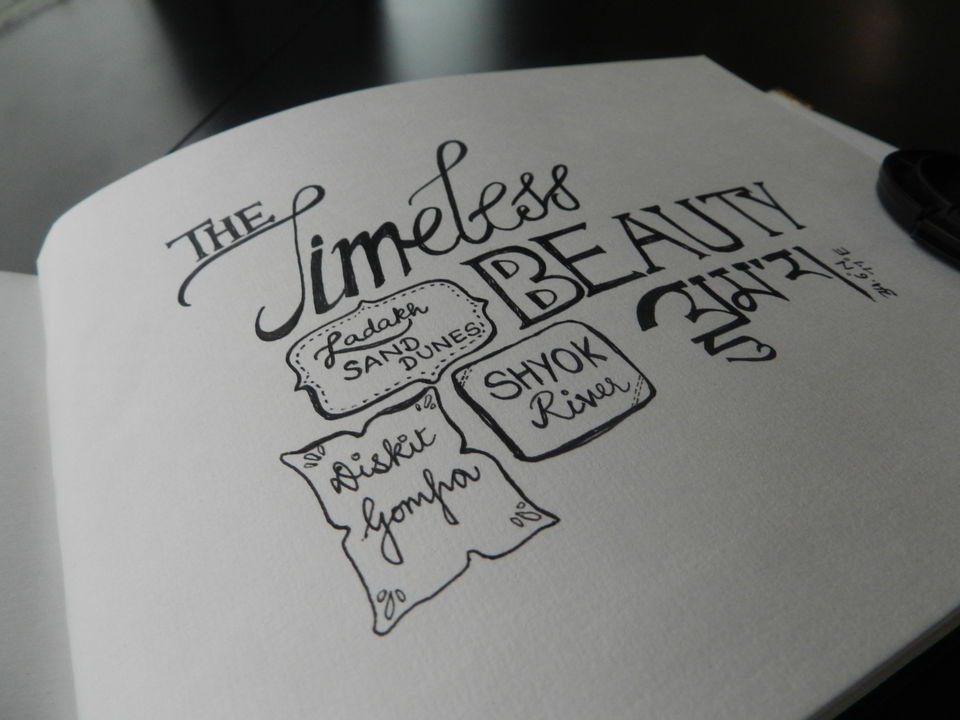 THE Timeless
BEAUTY
ལྡུམ་ར
Ladakh
SAND
DUNES
SHYOK
River
Diskit
Gompa